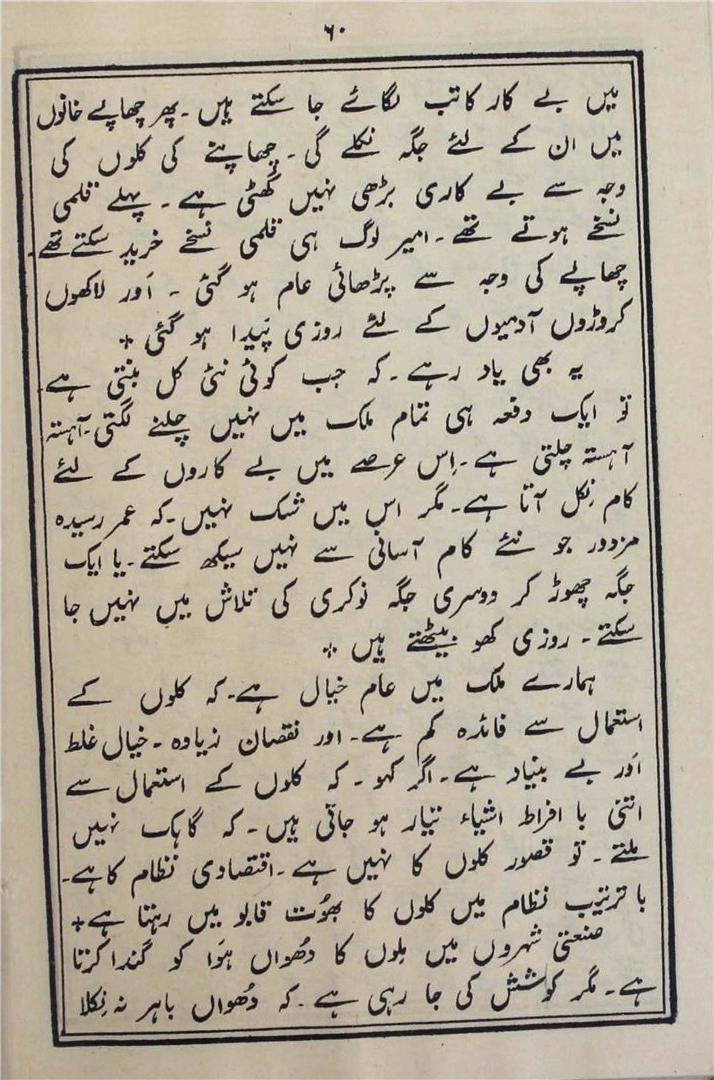 ۶۰
میں بے کار کاتب لگائے جا سکتے ہیں۔ پھر چھاپے خانوں
میں ان کے لئے جگہ نکلے گی۔ چھاپنے کی کلوں کی
وجہ سے بے کاری بڑھی نہیں گھٹی ہے۔ پہلے قلمی
نسخے ہوتے تھے۔ امیر لوگ ہی قلمی نسخے خرید سکتے تھے۔
چھاپے کی وجہ سے پڑھائی عام ہو گئی۔ اَور لاکھوں
کروڑوں آدمیوں کے لئے روزی پَیدا ہو گئی +
یہ بھی یاد رہے۔ کہ جب کوئی نئی کل بنتی ہے۔
تو ایک دفعہ ہی تمام ملک میں نہیں چلنے لگتی۔ آہستہ
آہستہ چلتی ہے۔ اِس عرصے میں بے کاروں کے لئے
کام نِکل آتا ہے۔ مگر اس میں شک نہیں۔ کہ عمر رسیدہ
مزدور جو نئے کام آسانی سے نہیں سیکھ سکتے۔ یا ایک
جگہ چھوڑ کر دوسری جگہ نوکری کی تلاش میں نہیں جا
سکتے۔ روزی کھو بیٹھتے ہیں +
ہمارے ملک میں عام خیال ہے۔ کہ کلوں کے
استعمال سے فائدہ کم ہے۔ اور نقصان زیادہ۔ خیال غلط
اَور بے بنیاد ہے۔ اگر کہو۔ کہ کلوں کے استعمال سے
اتنی با افراط اشیاء تیار ہو جاتی ہیں۔ کہ گاہک نہیں
ملتے۔ تو قصور کلوں کا نہیں ہے۔ اقتصادی نظام کا ہے۔
با ترتیب نظام میں کلوں کا بھوُت قابو میں رہتا ہے +
صنعتی شہروں میں مِلوں کا دُھواں ہَوا کو گندا کرتا
ہے۔ مگر کوشش کی جا رہی ہے۔ کہ دُھواں باہر نہ نِکلا